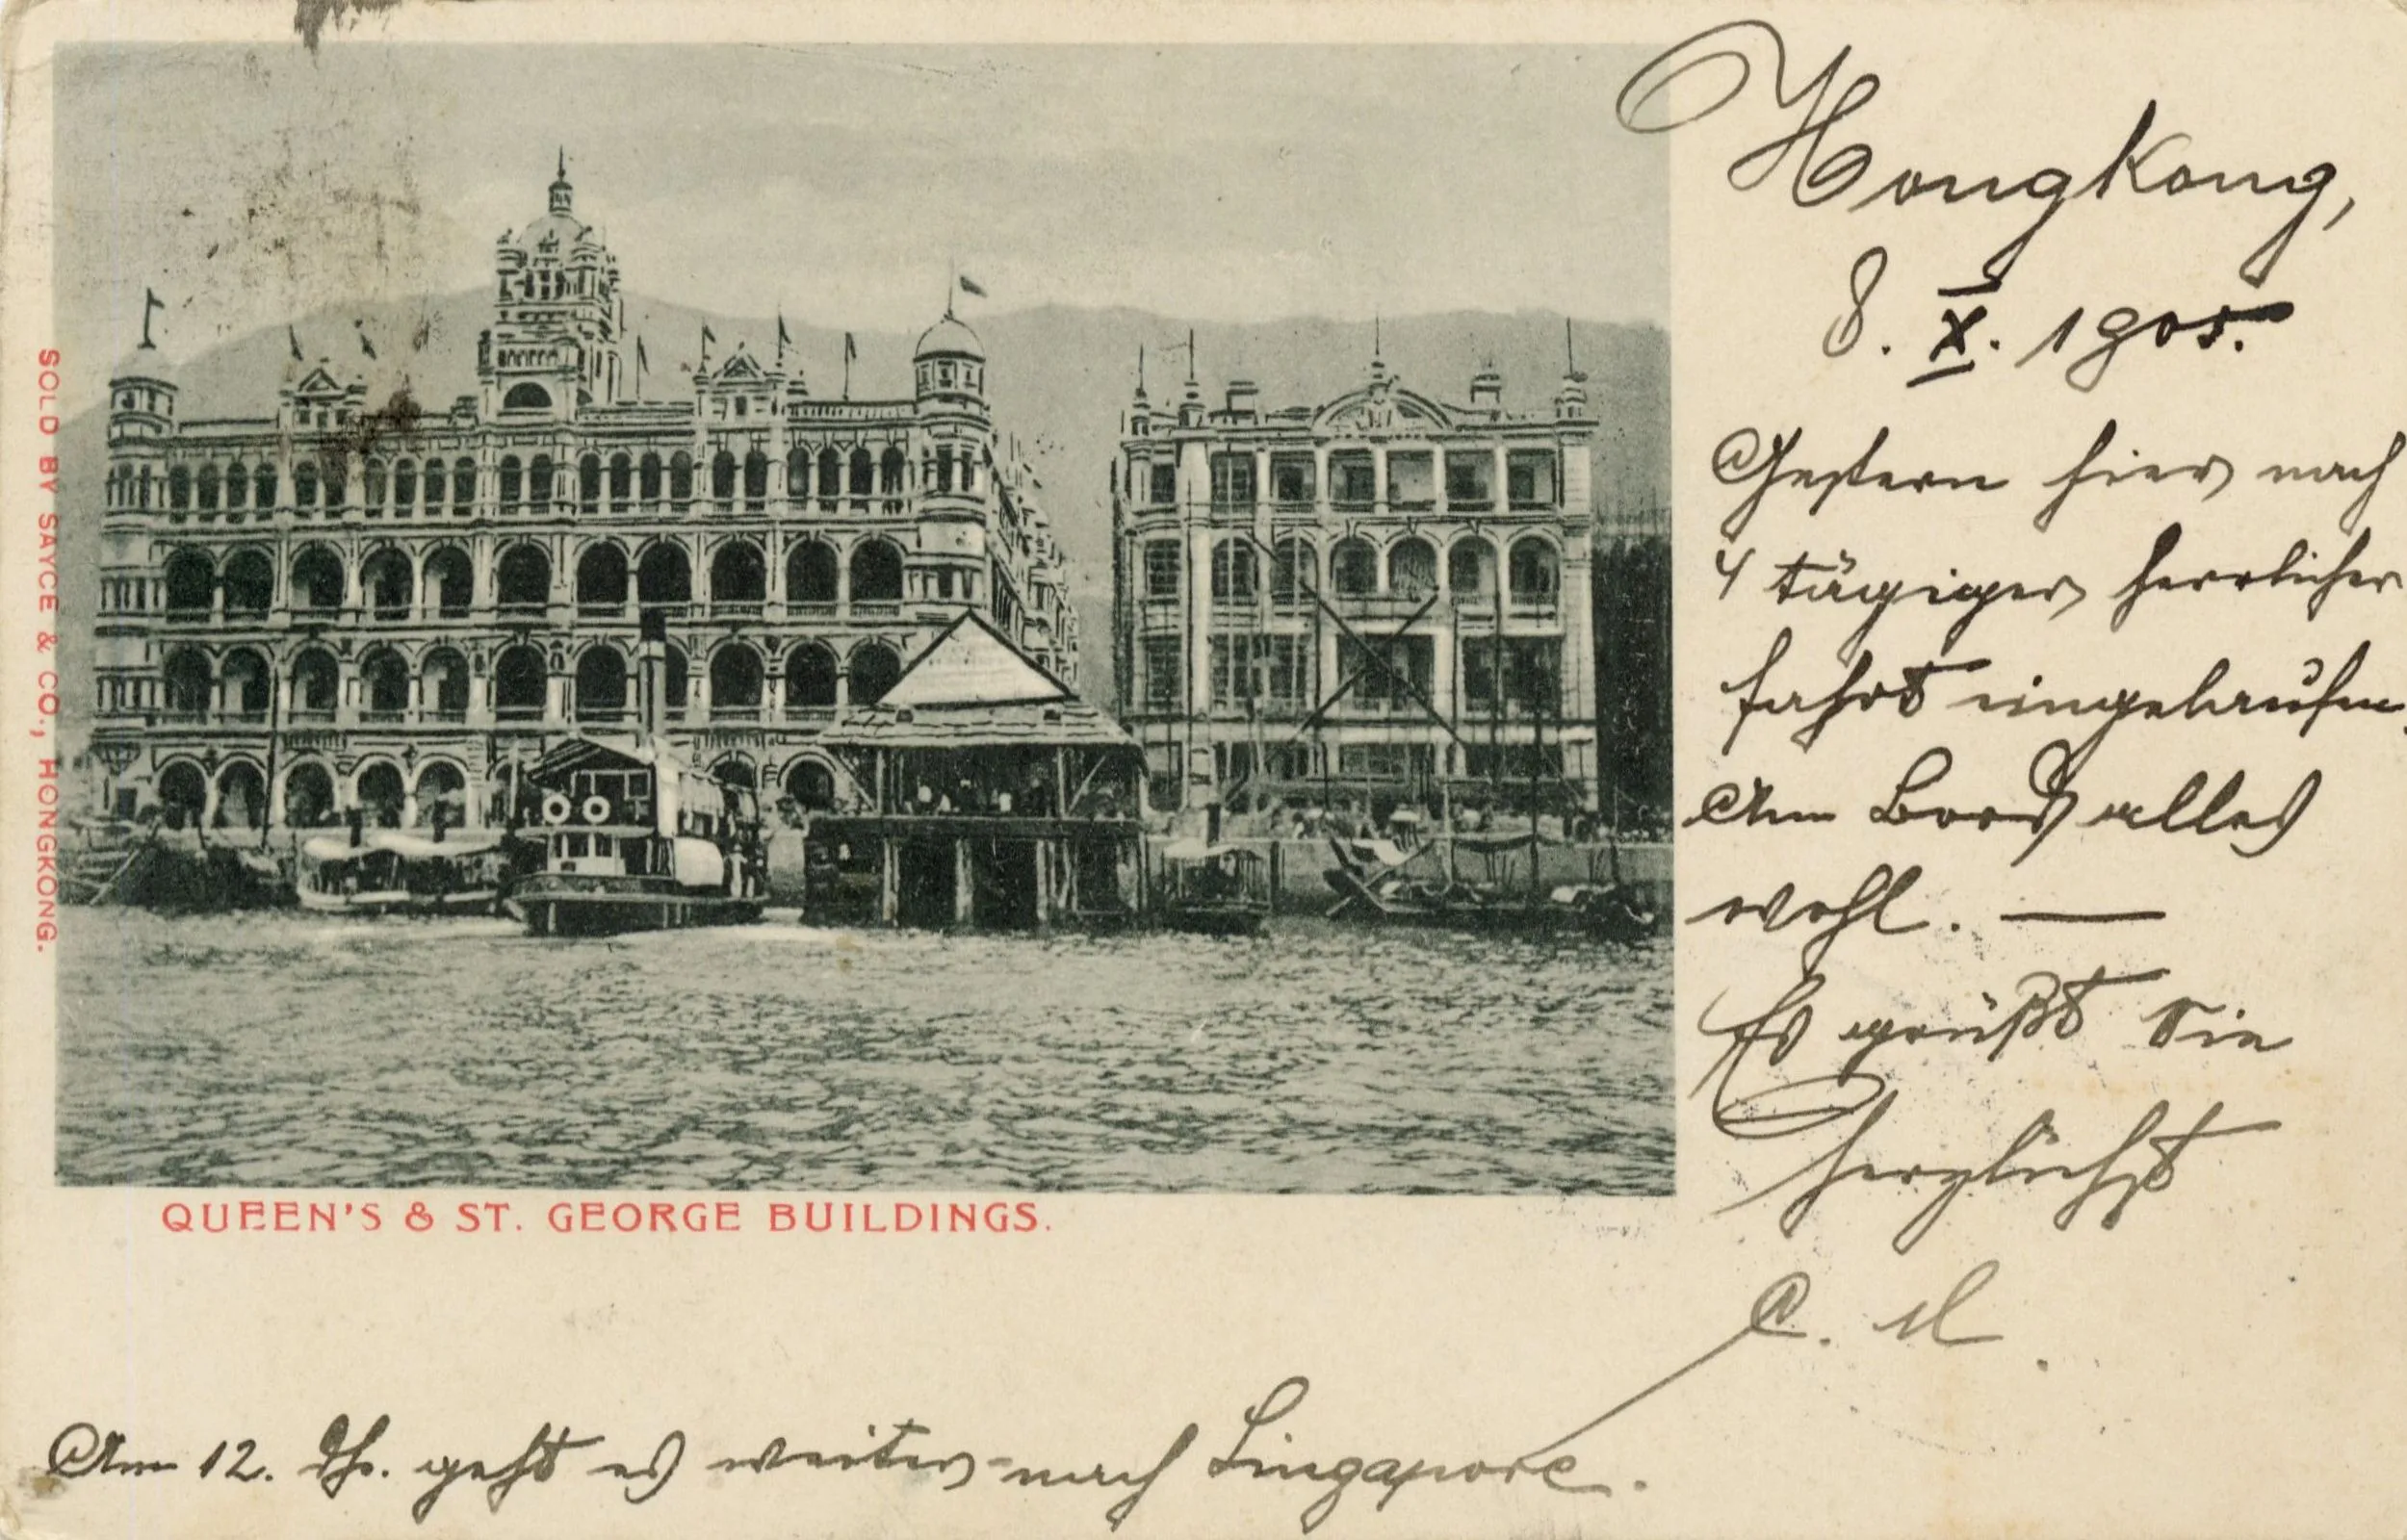 Hongkong,
8. X. 1905.
Gestern hier nach
4 tägiger herrlicher
Fahrt eingelaufen.
An Bord alles
wohl. —
Es grüßt Sie
herzlichst
C. M.
Am 12. ds. geht es weiter nach Singapore.
QUEEN'S & ST. GEORGE BUILDINGS.
SOLD BY SAYCE & CO., HONGKONG.